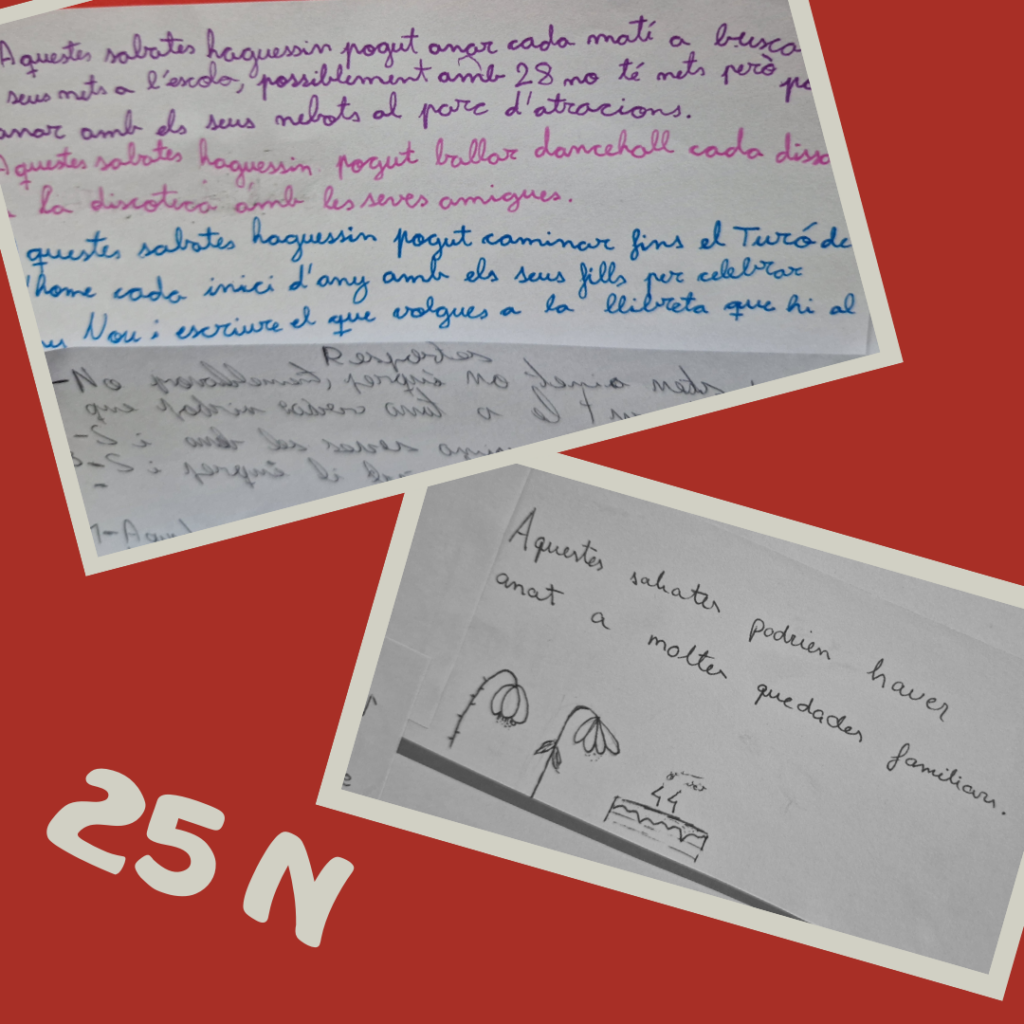 Aquestes sabates haguessin pogut anar cada matí a busca
seus nets a l'escola, possiblement amb 28 no té nets però po
anar amb els seus nebots al parc d'atracions.
Aquestes sabates haguessin pogut ballar dancehall cada dissa
la discoteca amb les seves amigues.
questes sabates haguessin pogut caminar fins el Turó de
l'home cada inici d'any amb els seus fills per celebrar
Nou i escriure el que volgues a la llibreta que hi al
Respostes
-No probablement, perquè no tenia nets
que
-Sí amb les seves
-Sí perquè li
1-Aque
Aquestes sabates podrien haver
anat a moltes quedades familiars.
44
25N